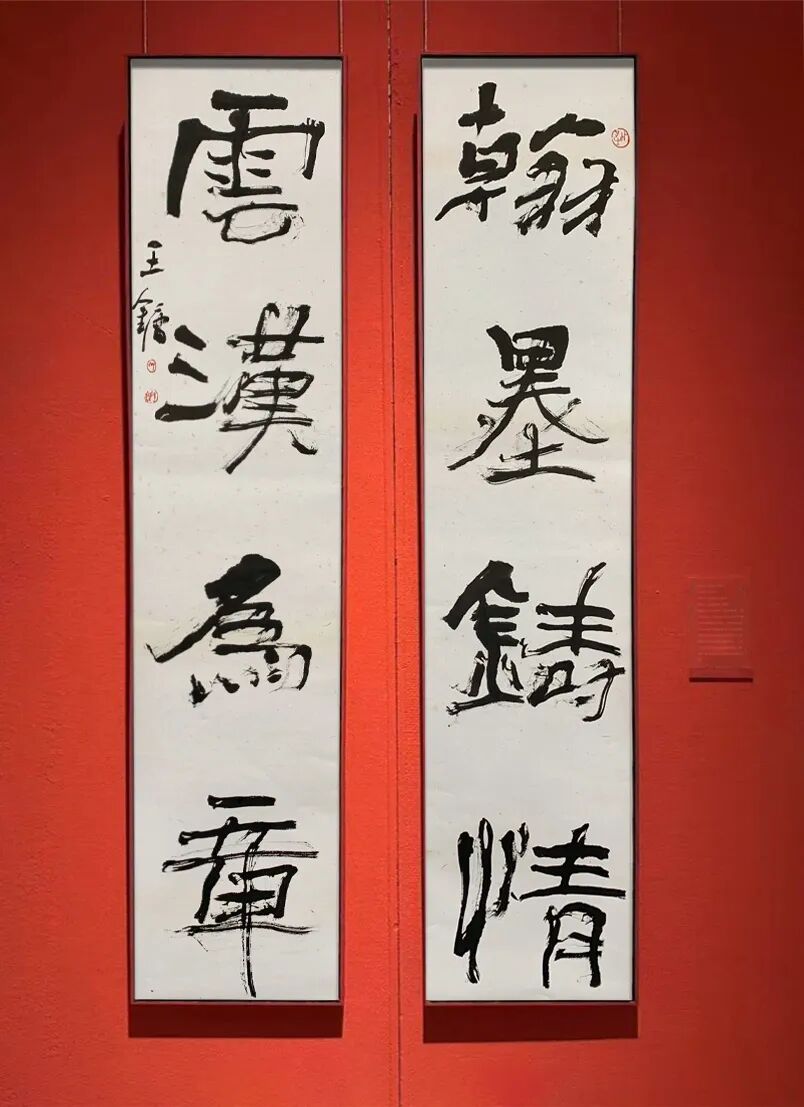 翰墨鑄情
雲漢為章
王鏞